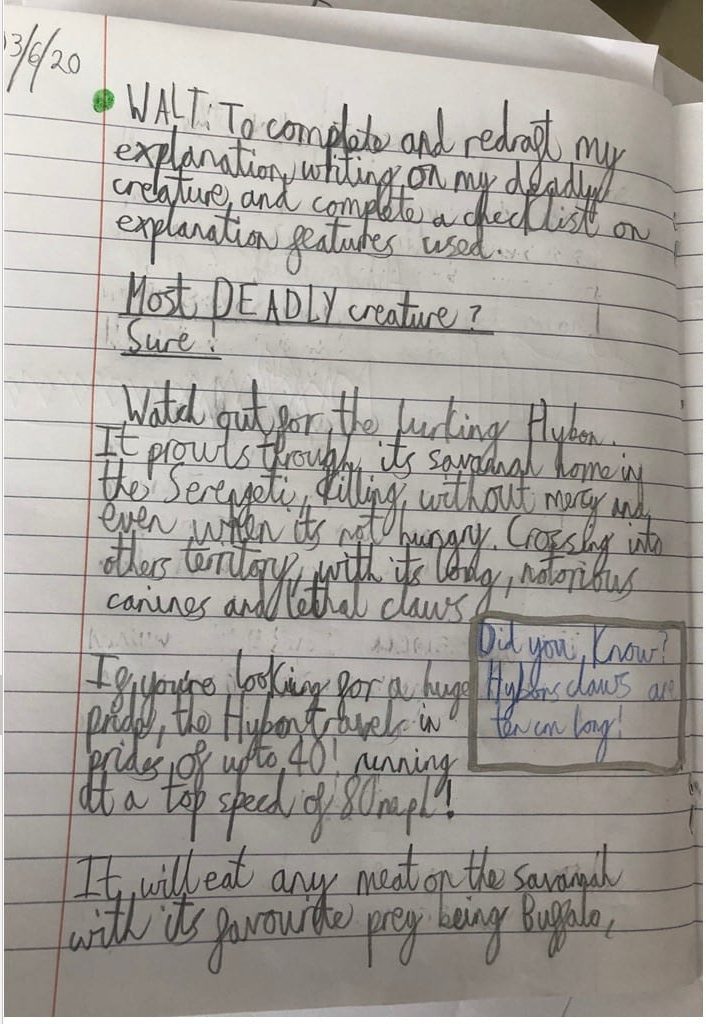 3/6/20
WALT: To complete and redraft my
explanation, writing on my deadly
creature, and complete a checklist on
explanation features used.
Most DEADLY creature?
Sure!
Watch out for, the lurking Hybon.
It prowls through, its savannah home in
the Serengeti, killing, without mercy and
even when its not hungry. Crossing into
others territory, with its long, notorious
canines and lethal claws.
Did you Know?
Hybons claws are
ten cm long!
If, you're looking for a huge
pride, the Hybon travels in
prides, of up to, 40! running
at a top speed of 80 mph!
It will eat any meat on the savannah
with its favourite prey being Buffalo,